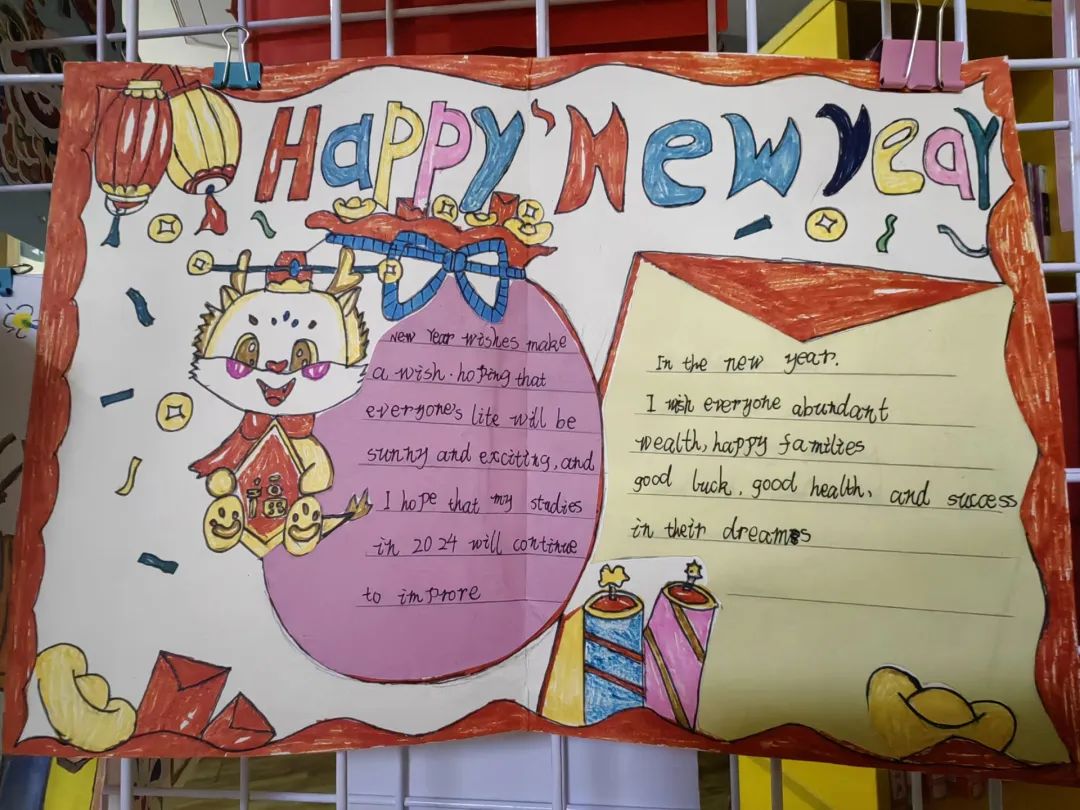 Happy New Year
New Year wishes make
a wish. hoping that
everyone's lite will be
sunny and exciting, and
I hope that my studies
in 2024 will continue
to improre
福
In the new year.
I wish everyone abundant
wealth, happy families
good luck. good health, and success
in their dreams